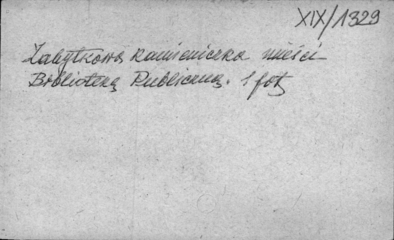 XIX/1329
Zabytkowa kamieniczka mieści
Bibliotekę Publiczną. 1 fot